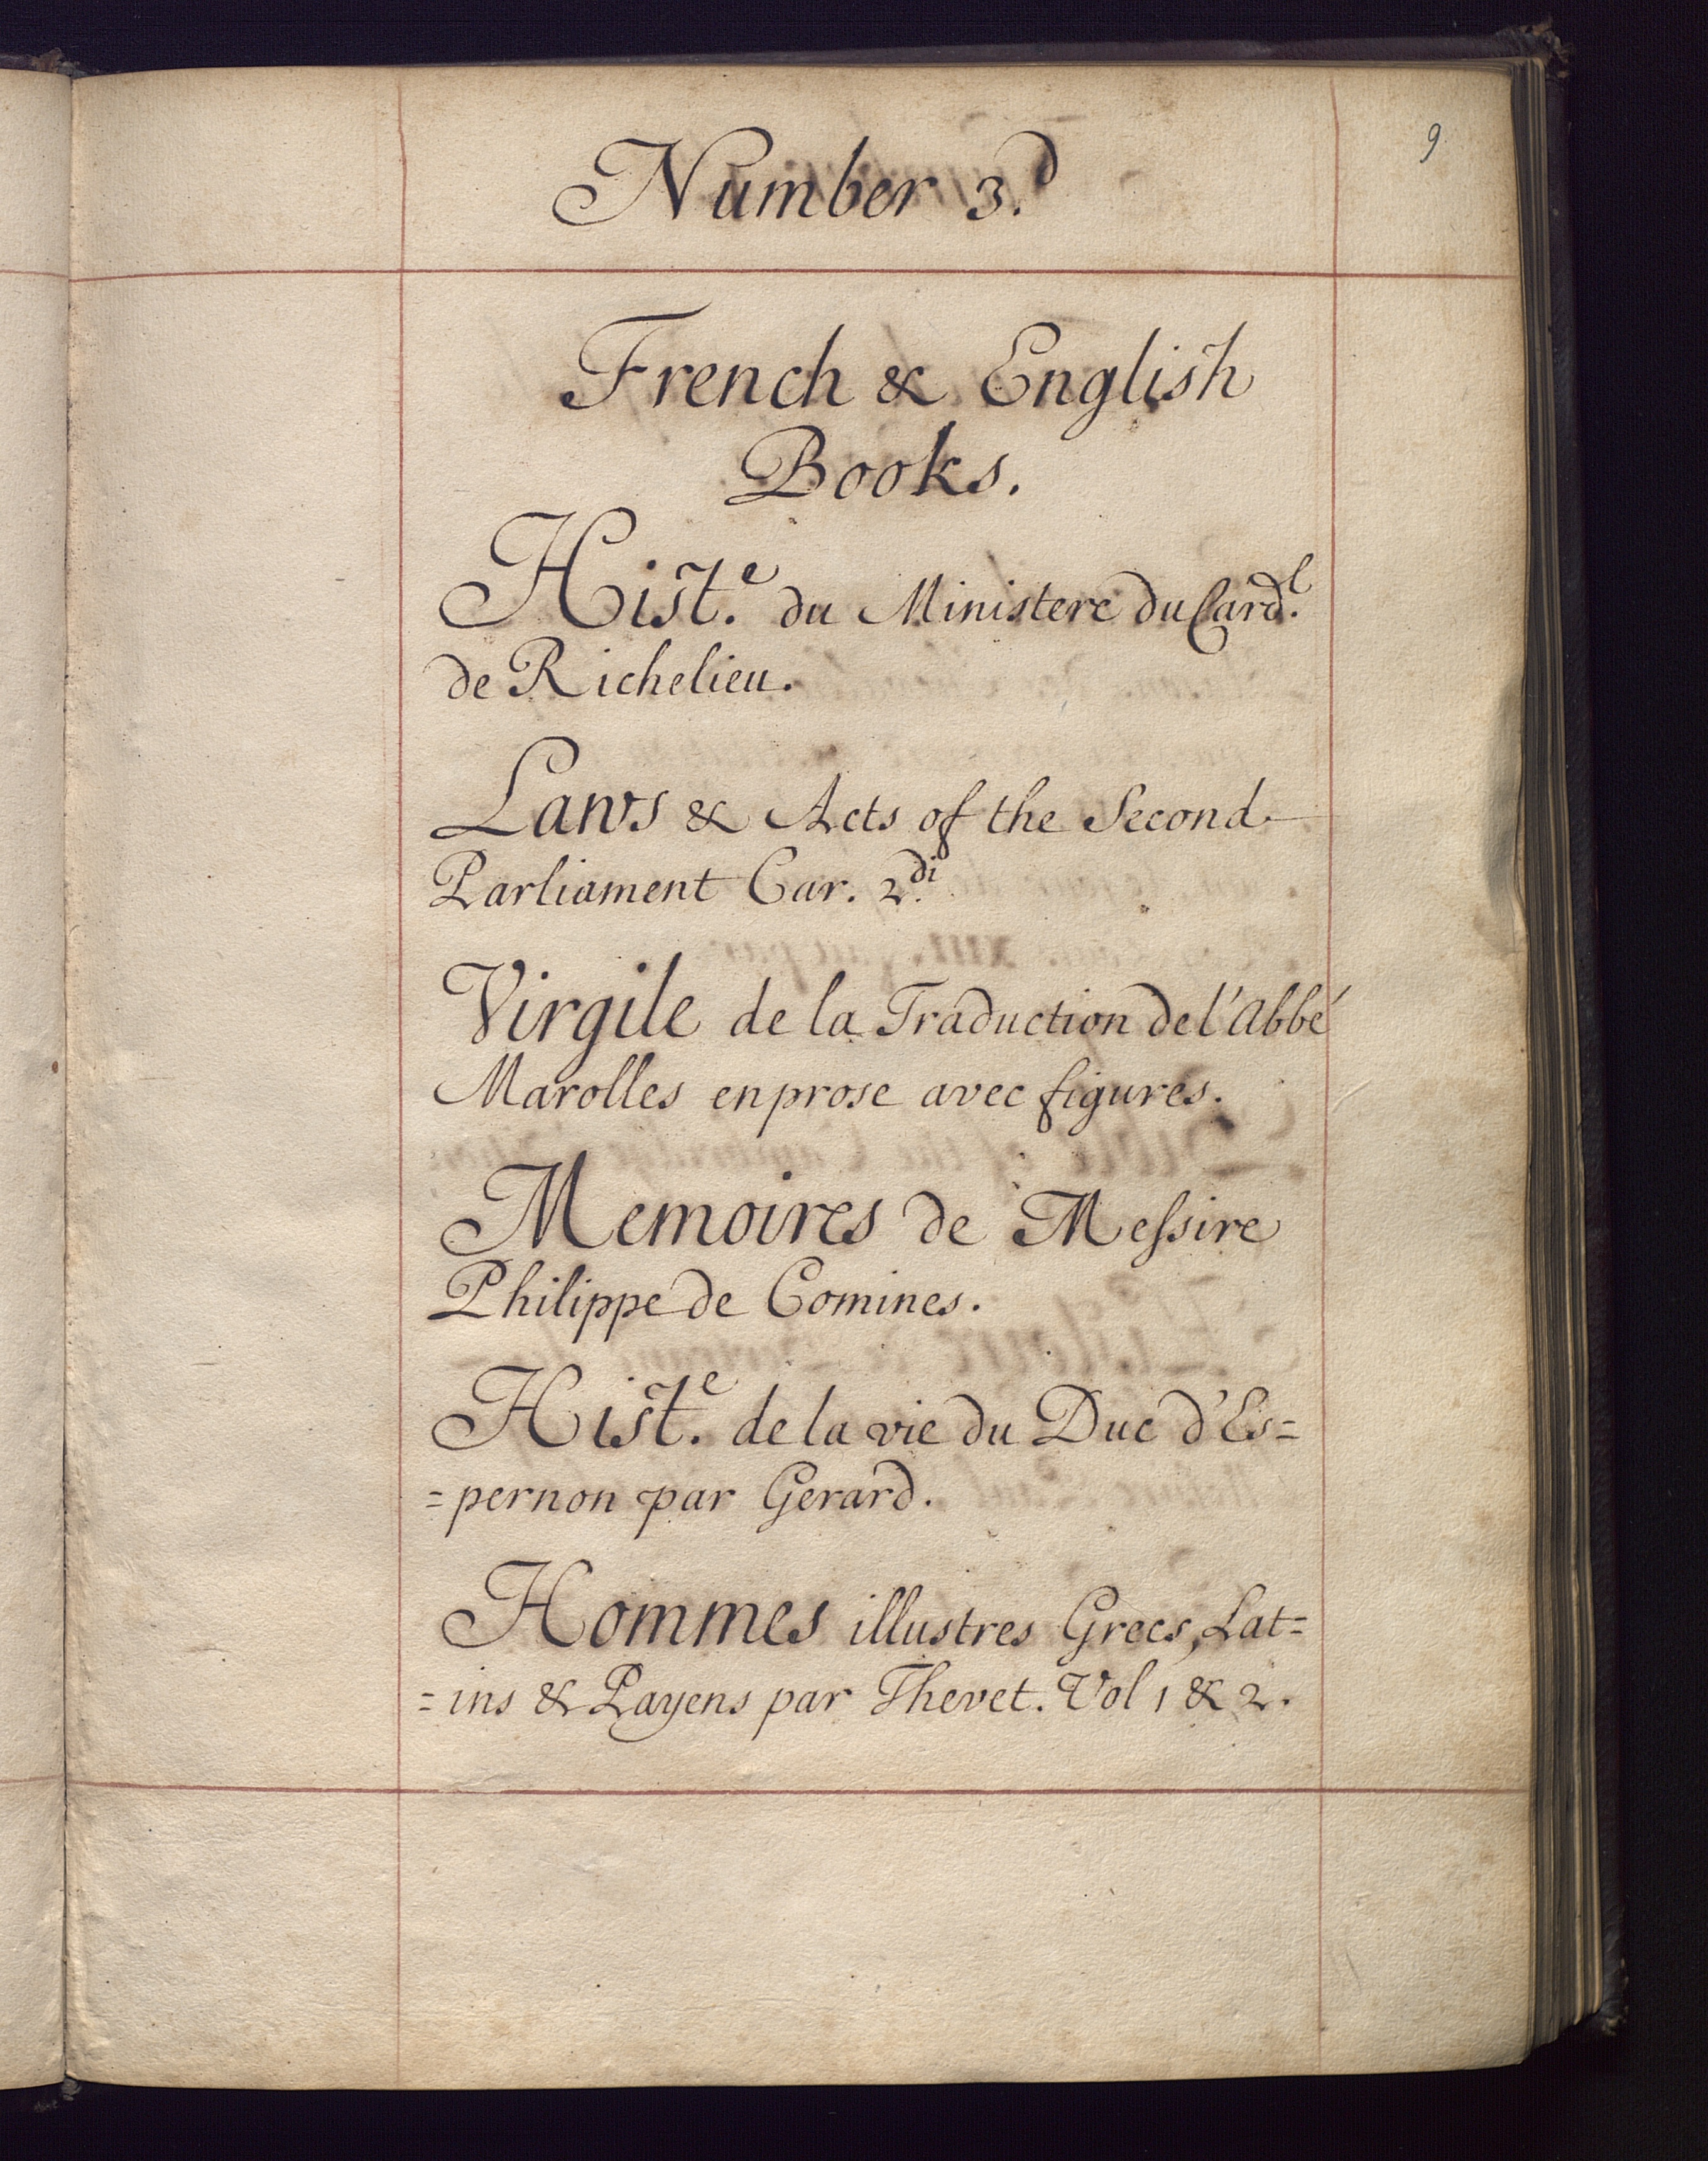 9
Number 3.d
French & English
Books.
Hist.e du Ministere du Card.l
de Richelieu.
Laws & Acts of the Second
Parliament Car. 2.di
Virgile de la Traduction de l'Abbé
Marolles en prose avec figures.
Memoires de Messire
Philippe de Comines.
Hist.e de la vie du Duc d'Es=
=pernon par Gerard.
Hommes illustres Grecs, Lat=
=ins & Payens par Thevet. Vol 1 & 2.